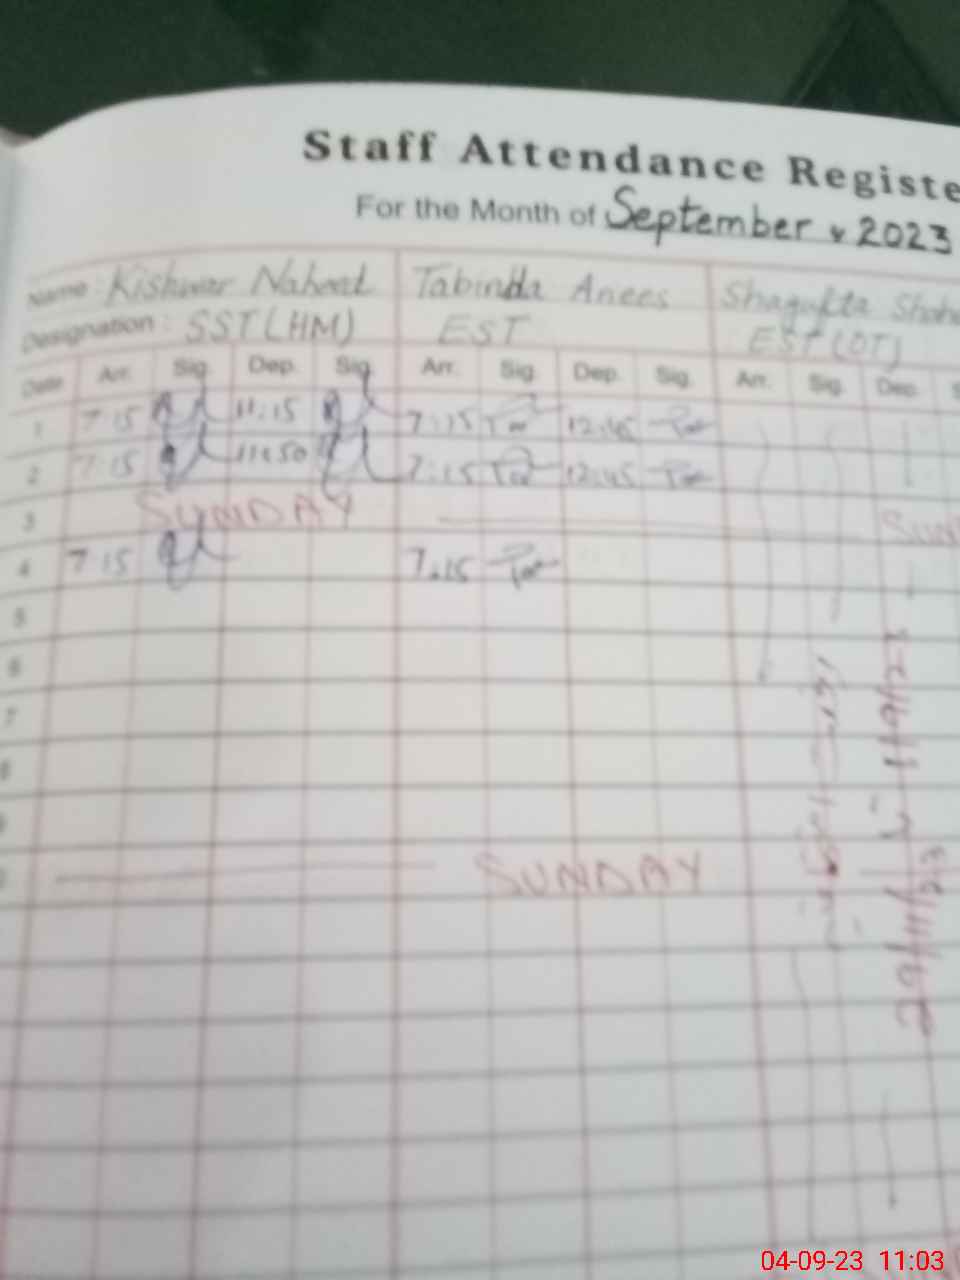 Staff Attendance Registe
For the Month of September 2023
Name: Kishwar Naheed Tabinda Anees Shagufta Shah
Designation: SST (HM) EST EST (OT)
Date Arr. Sig. Dep. Sig. Arr. Sig. Dep. Sig. Arr. Sig. Dep. S
1 7:15 11:15 7:15 12:45
2 7:15 11:50 7:15 12:45
3 SUNDAY SUN
4 7:15 7.15
5
6
7
8
9
SUNDAY
29/11/23
04-09-23 11:03